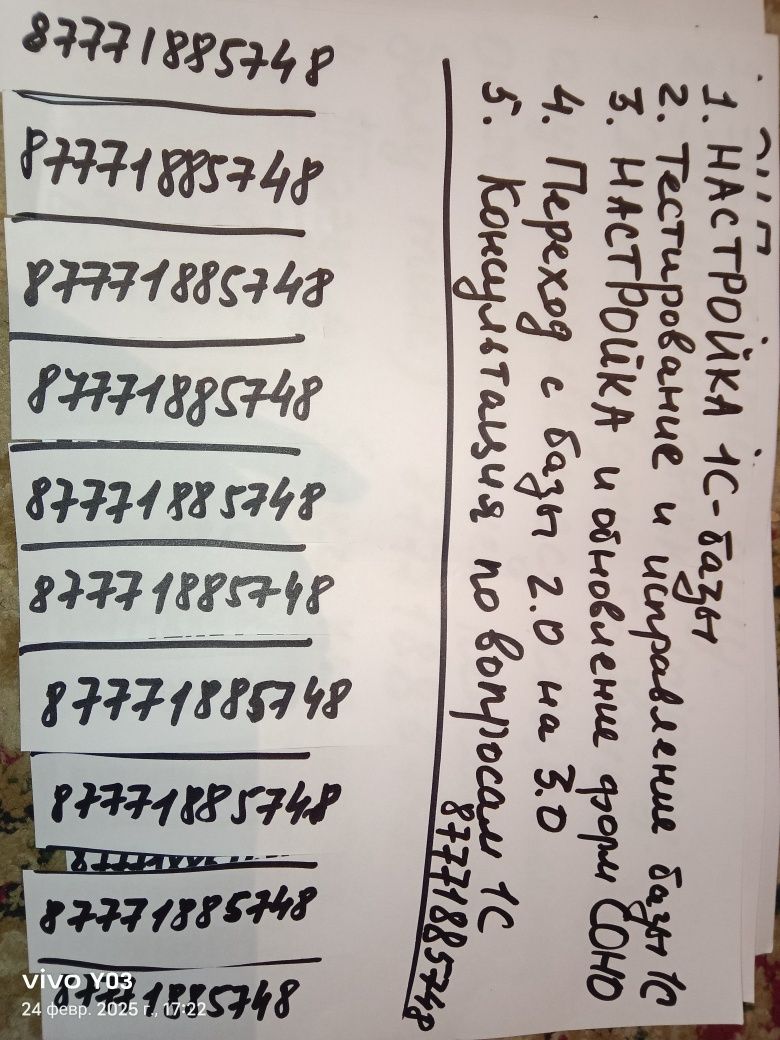 1. НАСТРОЙКА 1С-базы
2. Тестирование и исправление базы 1С
3. НАСТРОЙКА и обновление форм СОНО
4. Переход с базы 2.0 на 3.0
5. Консультация по вопросам 1С
87771885748
87771885748
87771885748
87771885748
87771885748
87771885748
87771885748
87771885748
87771885748
87771885748
87771885748
vivo Y03
24 февр. 2025 г., 17:22